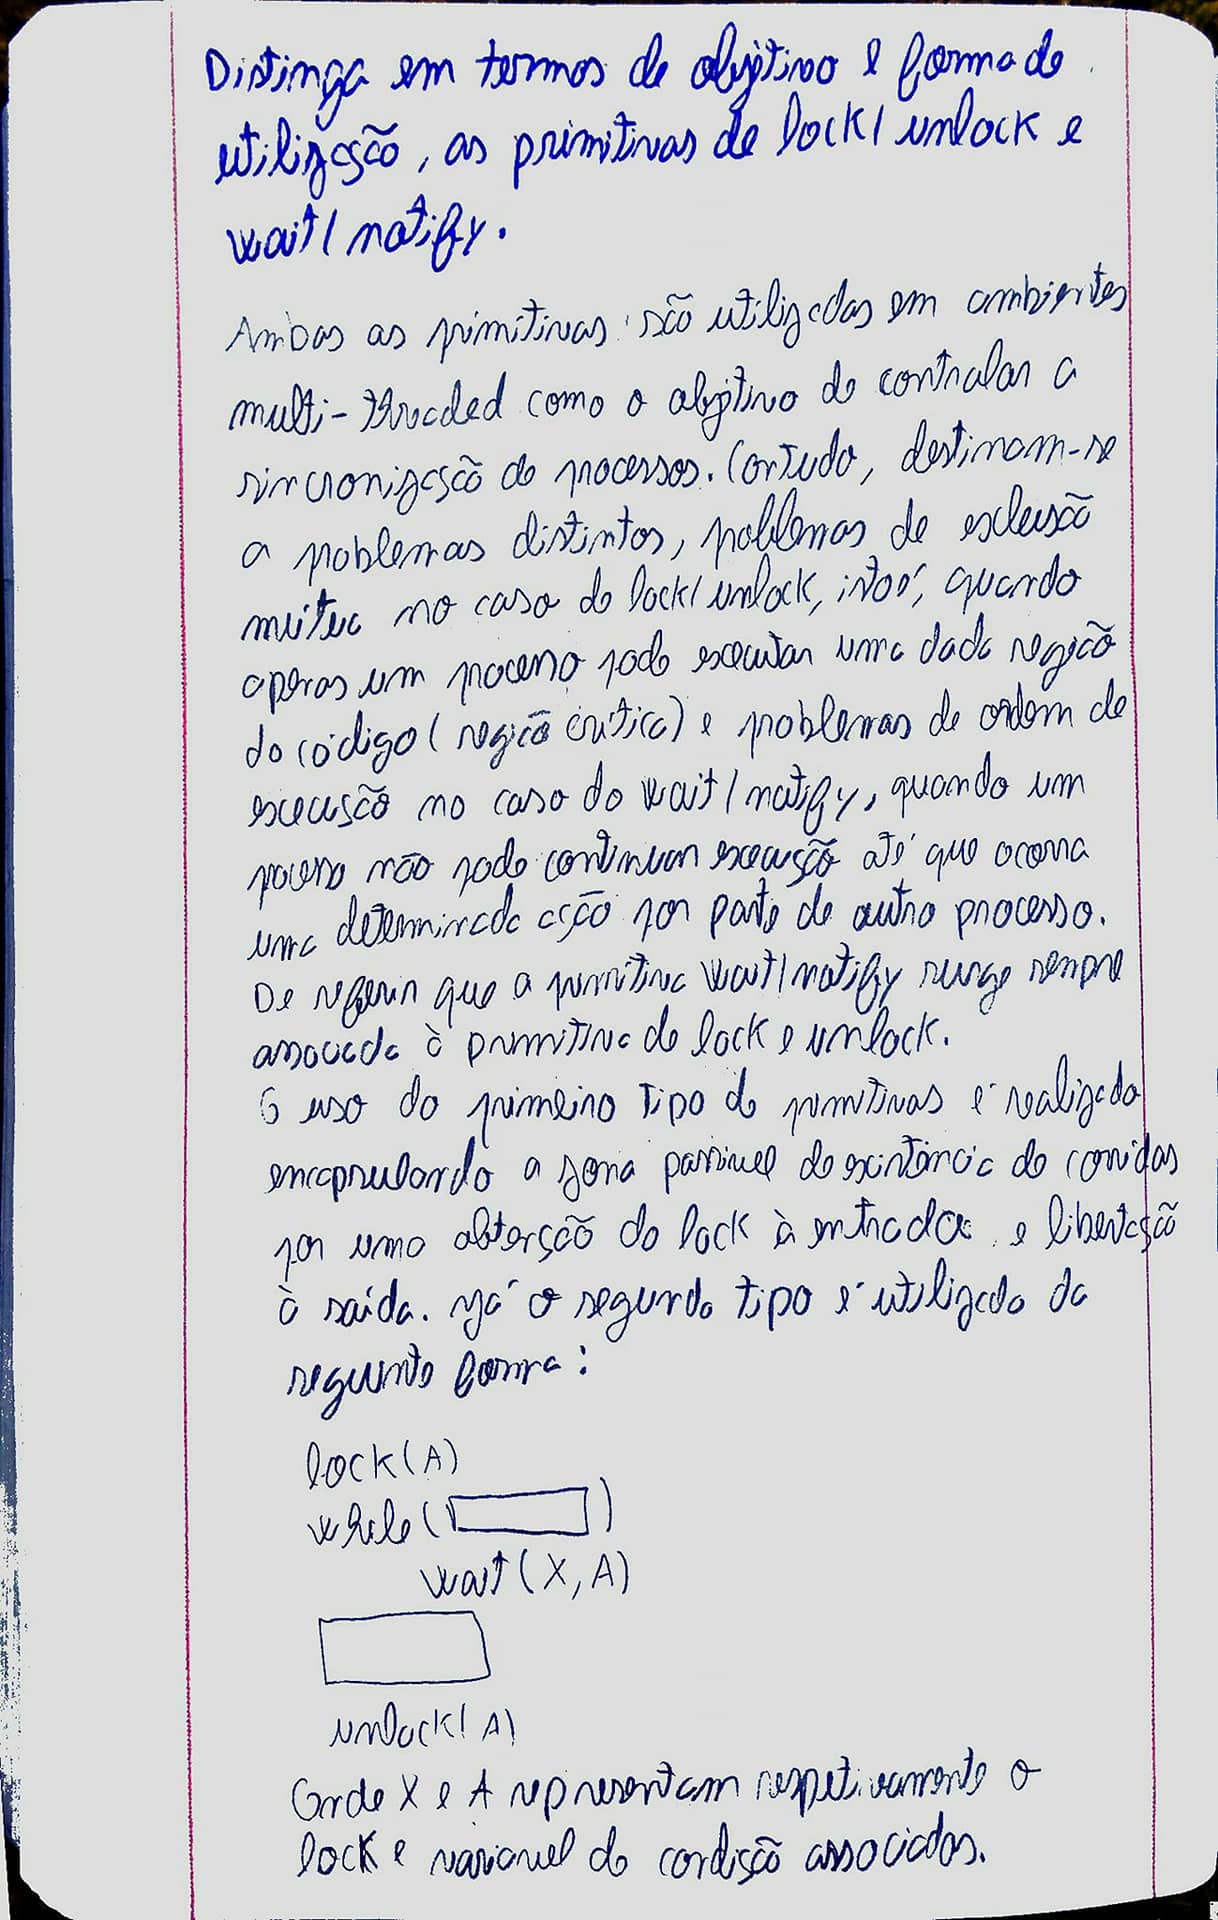 Distinga em termos de objetivo e forma de
utilização, as primitivas de lock/unlock e
wait/notify.
Ambas as primitivas são utilizadas em ambientes
multi-threaded como o objetivo de controlar a
sincronização de processos. Contudo, destinam-se
a problemas distintos, problemas de exclusão
mútua no caso do lock/unlock, isto é, quando
apenas um processo pode executar uma dada região
do código (região crítica) e problemas de ordem de
execução no caso do wait/notify, quando um
processo não pode continuar execução até que ocorra
uma determinada ação por parte de outro processo.
De referir que a primitiva wait/notify surge sempre
associada à primitiva de lock e unlock.
O uso do primeiro tipo de primitivas é realizado
encapsulando a zona passível de existência de corridas
por uma obtenção do lock à entrada e libertação
à saída. Já o segundo tipo é utilizado da
seguinte forma:
lock(A)
while( )
wait(X,A)
unlock(A)
Onde X e A representam respetivamente o
lock e variável de condição associados.